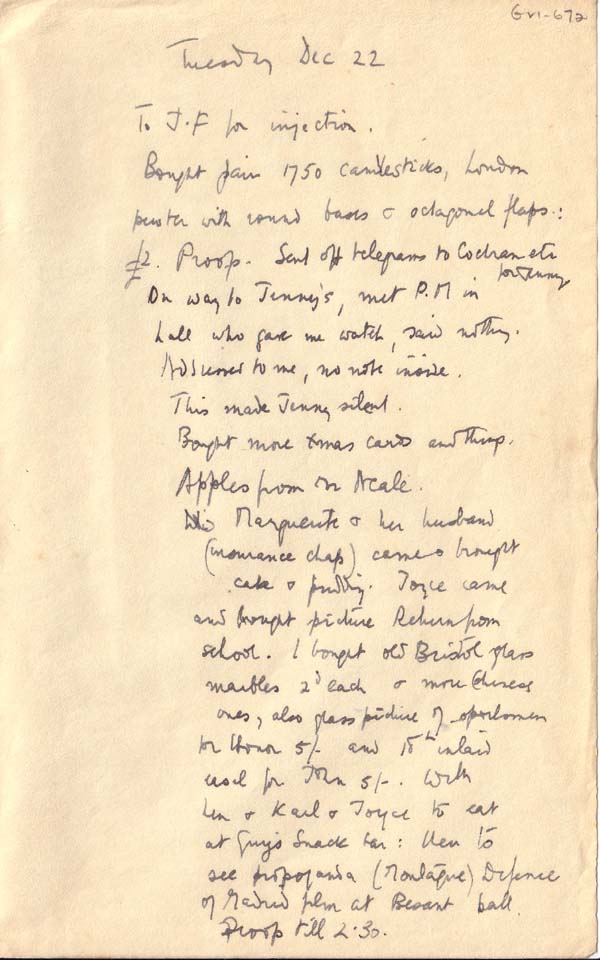 GVI-672
Tuesday Dec 22
To J.F for injection.
Bought pair 1750 candlesticks, London
pewter with round bases & octagonal flaps:
£2. Proofs. Sent off telegrams to Cochran etc
for Jenny
On way to Jenny's, met P.M in
hall who gave me watch, said nothing.
Addressed to me, no note inside.
This made Jenny silent.
Bought more Xmas cards and things.
Apples from Mr Neale.
Marguerite & her husband
(insurance chap) came & brought
cake & pudding. Joyce came
and brought picture Return from
school. I bought old Bristol glass
marbles 2d each & more Chinese
ones, also glass picture of sportsmen
for Honor 5/- and 18th inlaid
easel for John 5/-. With
Len & Karl & Joyce to eat
at Guy's Snack bar: then to
see propaganda (Montague) Defence
of Madrid film at Besant hall.
Proofs till 2.30.